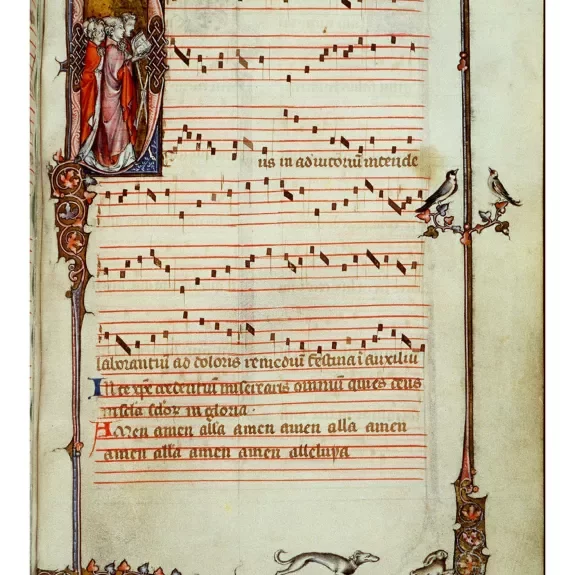 us in adiutoriū intende
laborantiū ad doloris remediū festina ī auxiliū
In te xp̄e credentiū miserearis omniū quies ceus
in secla sclor in gloria.
Amen amen alla amen amen alla amen
amen alla amen amen alleluya